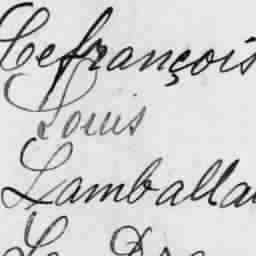 Lefrançois
Louis
Lamballa